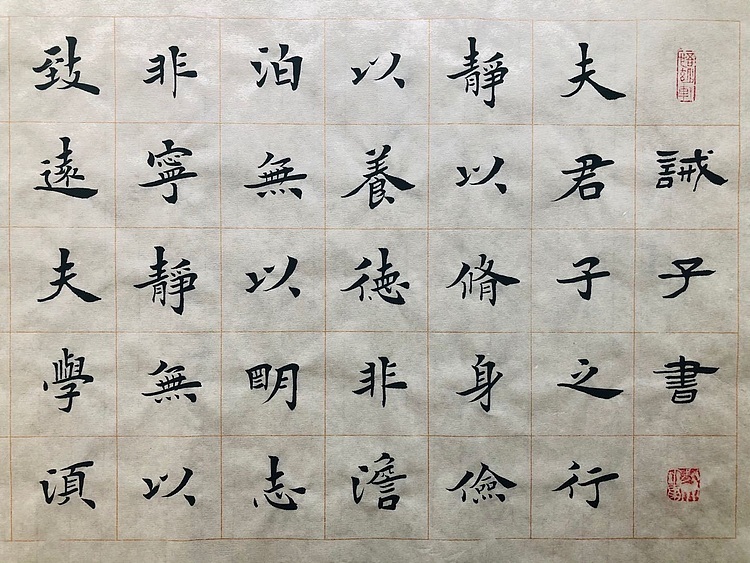 誡子書
夫君子之行
靜以脩身儉
以養德非澹
泊無以明志
非寧靜無以
致遠夫學須